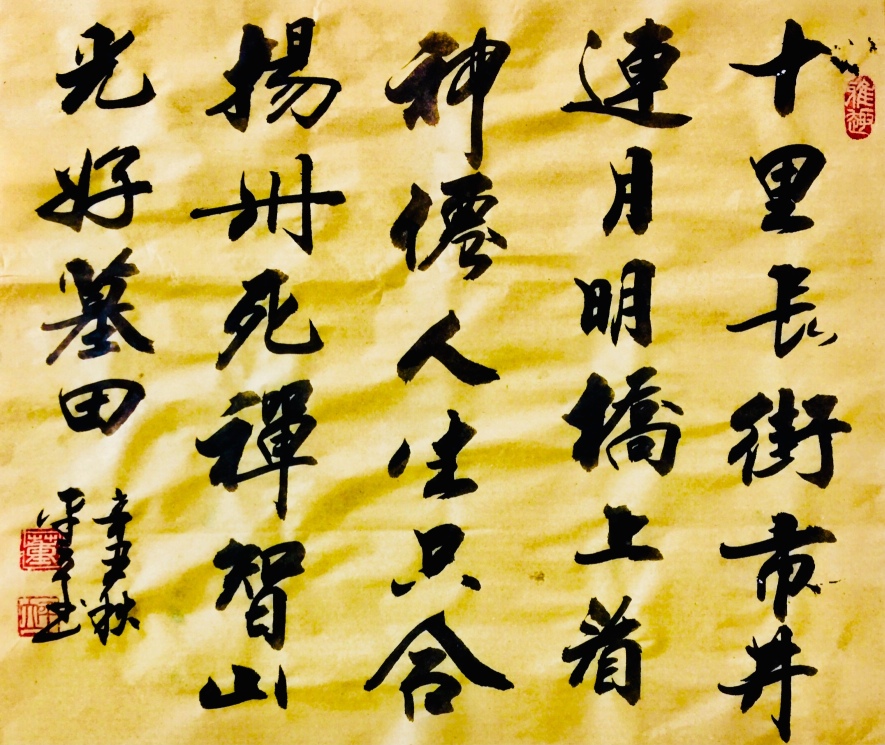 十里長街市井
連月明橋上看
神僊人生只合
揚州死禪智山
光好墓田
辛丑秋
平
書
雅趣
董